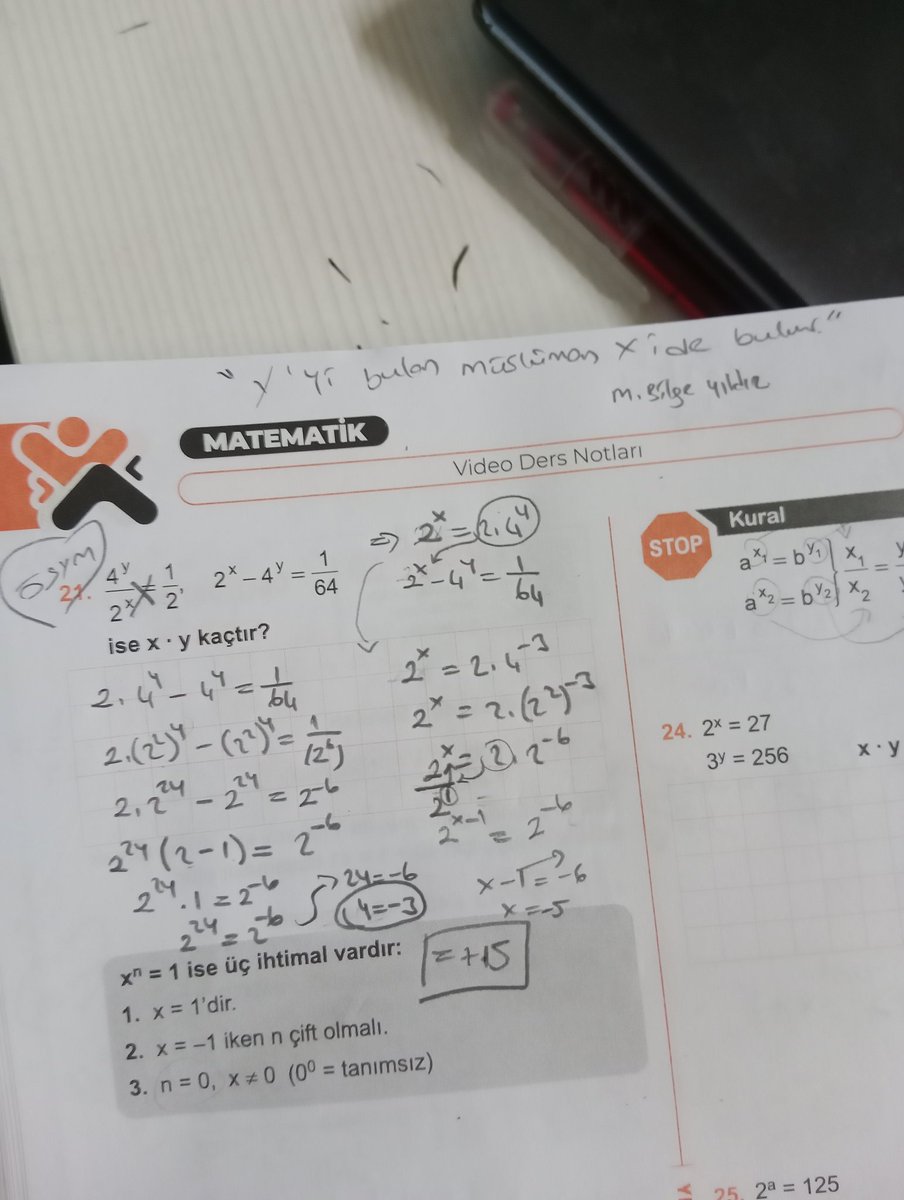 "Y'yi bulan müslüman X'ide bulur."
M. Bilge Yıldız
MATEMATİK
Video Ders Notları
ÖSYM
21. 4^y/2^x = 1/2, 2^x – 4^y = 1/64
ise x · y kaçtır?
⇒ 2^x = 2.4^y
2^x - 4^y = 1/64
2.4^y - 4^y = 1/64
2.(2²)^y - (2²)^y = 1/(2^6)
2.2^2y - 2^2y = 2^-6
2^2y (2-1) = 2^-6
2^2y . 1 = 2^-6
2^2y = 2^-6
2y = -6
y = -3
2^x = 2.4^-3
2^x = 2.(2²)^-3
2^x = 2.2^-6
2^x-1 = 2^-6
x-1 = -6
x = -5
= +15
x^n = 1 ise üç ihtimal vardır:
1. x = 1'dir.
2. x = –1 iken n çift olmalı.
3. n = 0, x ≠ 0 (0^0 = tanımsız)
STOP
Kural
a^x₁ = b^y₁
a^x₂ = b^y₂
x₁/x₂ =
24. 2^x = 27
3^y = 256 x · y
25. 2^a = 125